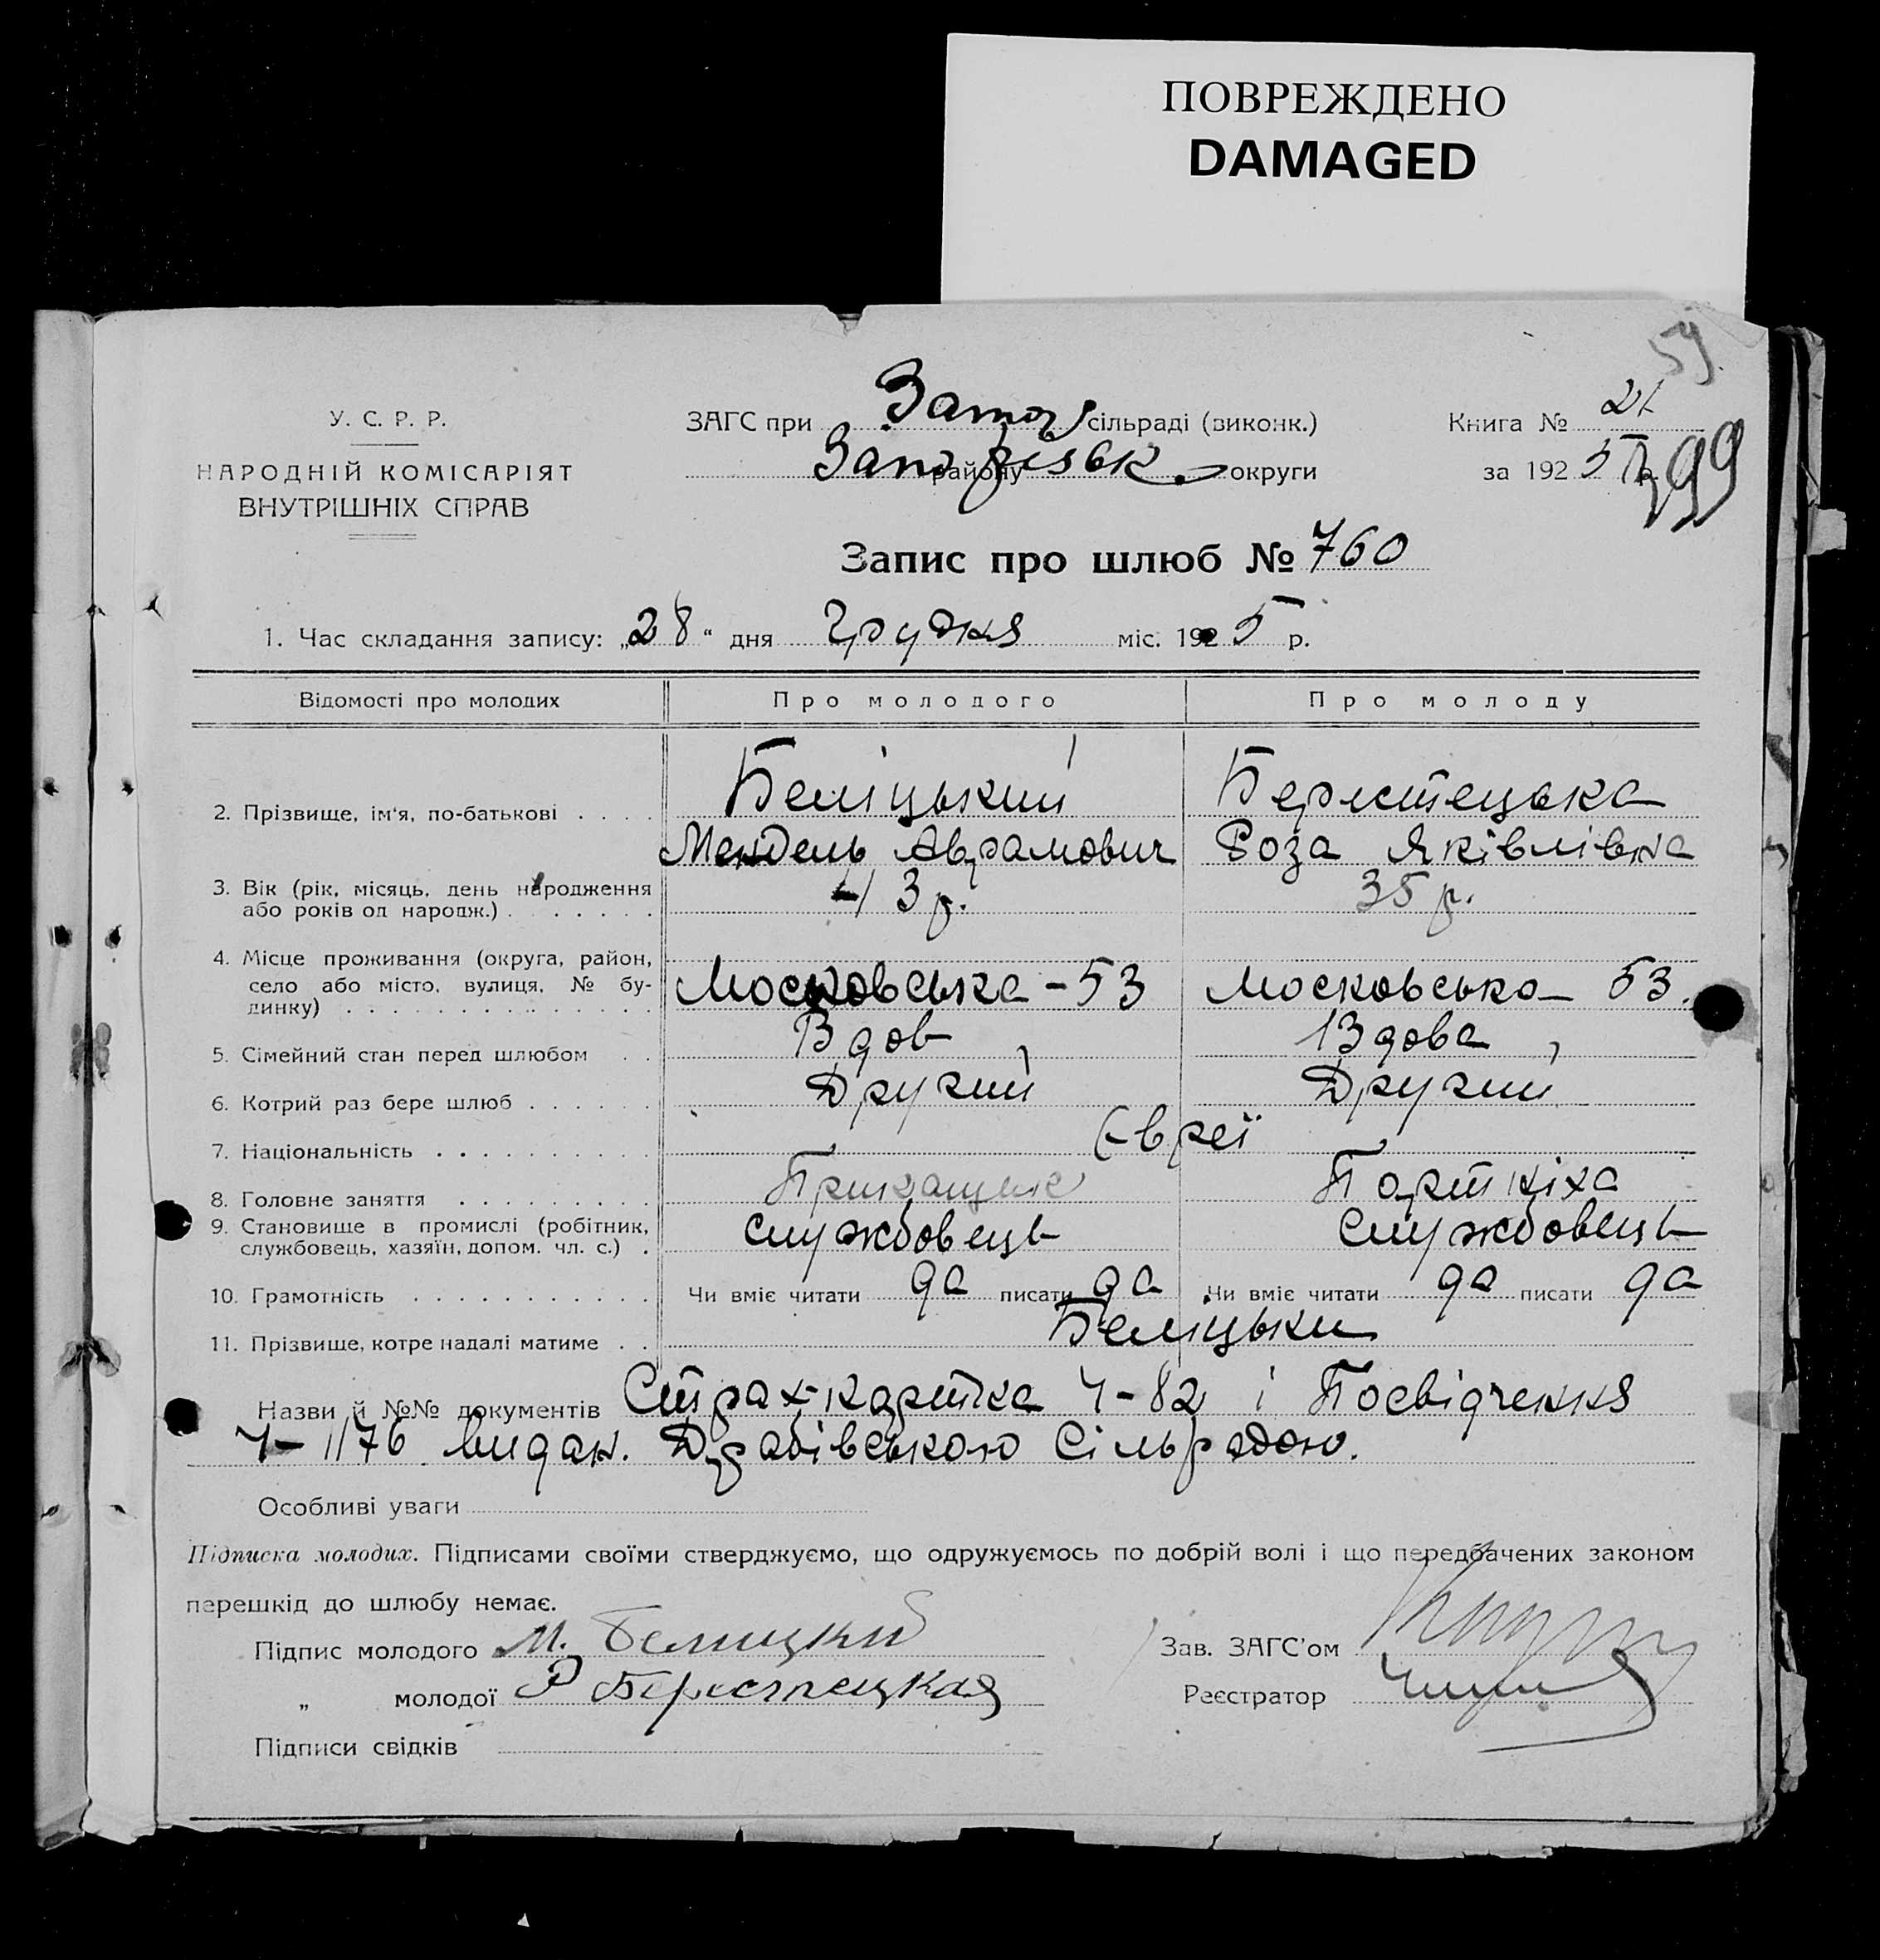 ПОВРЕЖДЕНО
DAMAGED
59.
У. С. Р. Р.
НАРОДНІЙ КОМІСАРІЯТ
ВНУТРІШНІХ СПРАВ
ЗАГС при сільраді (виконк.)
району округи
Книга № 21
за 1925 р.
399
Запис про шлюб № 760
1. Час складання запису: „28“ дня Грудня міс. 1925 р.
Відомості про молодих Про молодого Про молоду
2. Прізвище, ім'я, по-батькові . . . . Беліцький Берестецька
Мендель Аврамович Роза Яківлівна
3. Вік (рік, місяць, день народження або років од народж.) . . . . . . . 43 р. 35 р.
4. Місце проживання (округа, район, село або місто, вулиця, № будинку) . . . . . . . . . . . . . . Московська - 53 Московська - 53.
5. Сімейний стан перед шлюбом . . Вдов Вдова
6. Котрий раз бере шлюб . . . . . . Другий Другий
7. Національність . . . . . . . . . . Євреї
8. Головне заняття . . . . . . . . . Прикащик Портніха
9. Становище в промислі (робітник, службовець, хазяїн, допом. чл. с.) . службовець службовець
10. Грамотність . . . . . . . . . . . Чи вміє читати да писати да Чи вміє читати да писати да
11. Прізвище, котре надалі матиме . . Беліцьки
Назви й №№ документів Страх-картка Ч-82 і Посвідчення
Ч-1176 видан. Драбівською Сільрадою.
Особливі уваги
Підписка молодих. Підписами своїми стверджуємо, що одружуємось по добрій волі і що передбачених законом
перешкід до шлюбу немає.
Підпис молодого М. Белицкий
„ молодої Р Берестецкая
Підписи свідків
Зав. ЗАГС'ом
Реєстратор